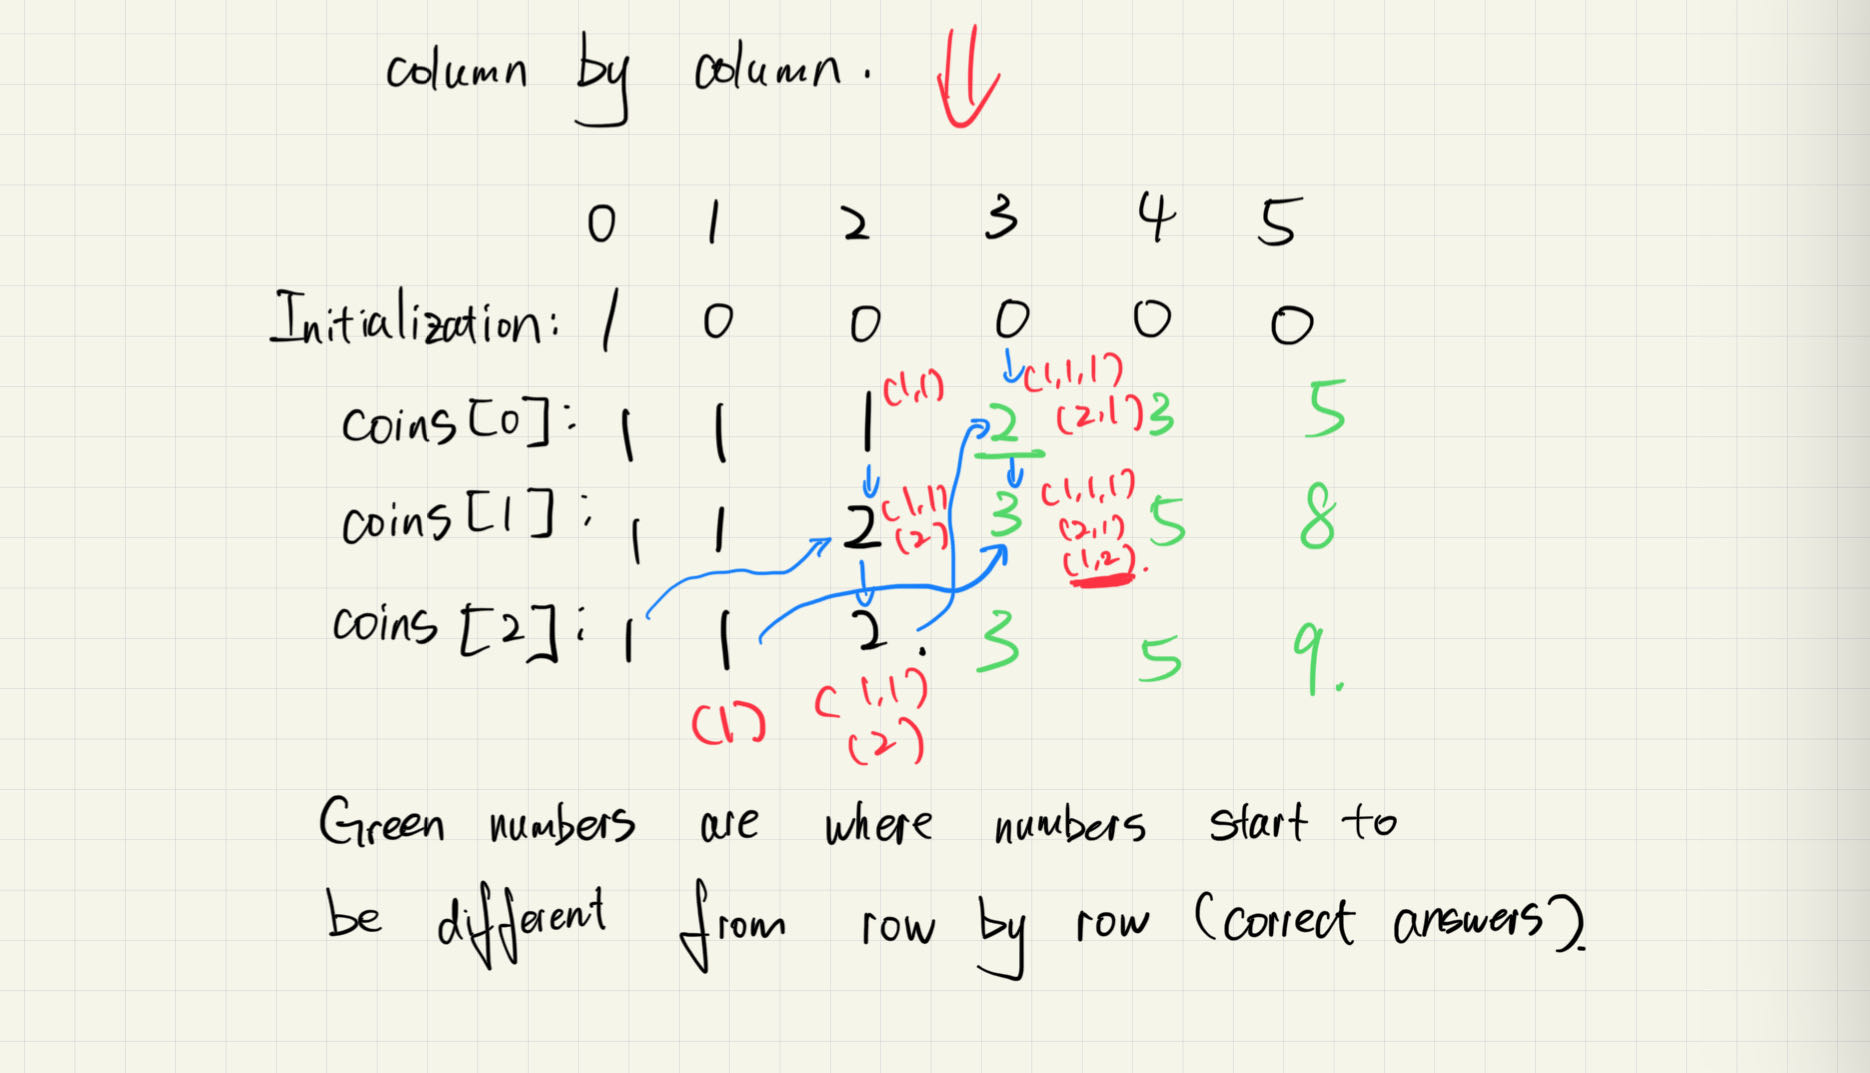 column by column.
0 1 2 3 4 5
Initialization: 1 0 0 0 0 0
(1,1) (1,1,1)
coins[0]: 1 1 1 2 (2,1) 3 5
(1,1) (1,1,1)
coins[1]: 1 1 2 (2) 3 (2,1) 5 8
(1,2).
coins[2]: 1 1 2. 3 5 9.
(1) (1,1)
(2)
Green numbers are where numbers start to
be different from row by row (correct answers).